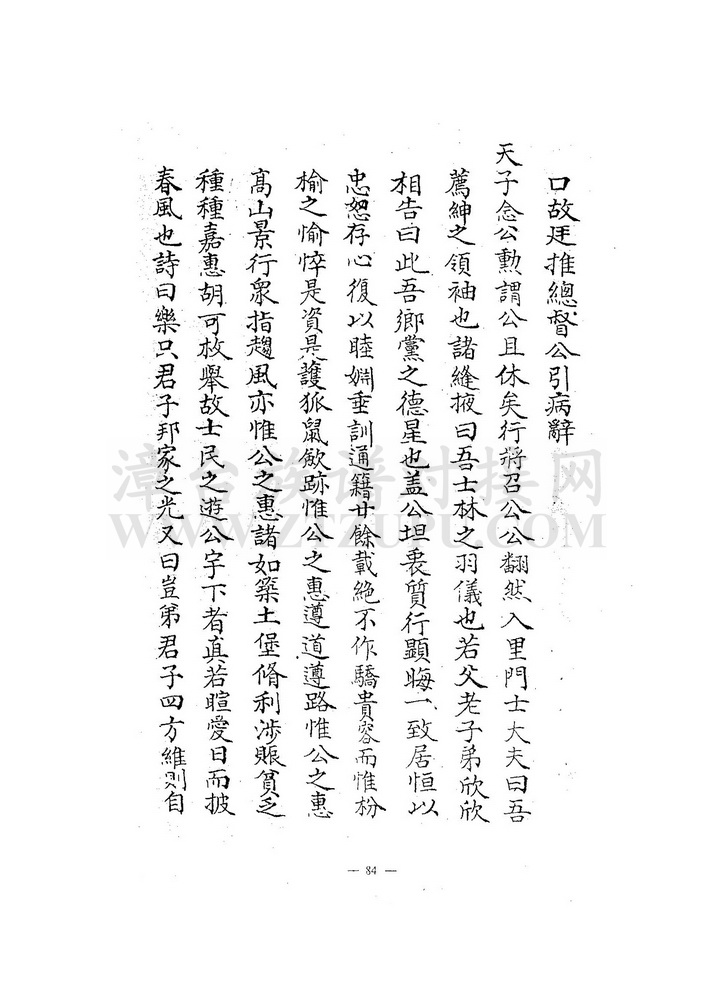 口故廷推總督公引病辭
天子念公勳謂公且休矣行將召公公翻然入里門士大夫曰吾
薦紳之領袖也諸縫掖曰吾士林之羽儀也若父老子弟欣欣
相告曰此吾鄉黨之德星也盖公坦衷質行顯晦一致居恒以
忠恕存心復以睦婣垂訓通籍廿餘載絶不作驕貴容而惟枌
榆之愉悴是資是護狐鼠歛跡惟公之惠遵道遵路惟公之惠
高山景行衆指趨風亦惟公之惠諸如築土堡脩利涉賑貧乏
種種嘉惠胡可枚舉故士民之遊公宇下者眞若暄愛日而披
春風也詩曰樂只君子邦家之光又曰豈弟君子四方維則自
漳台族谱对接网
WWW.ZTZUPU.COM
— 84 —